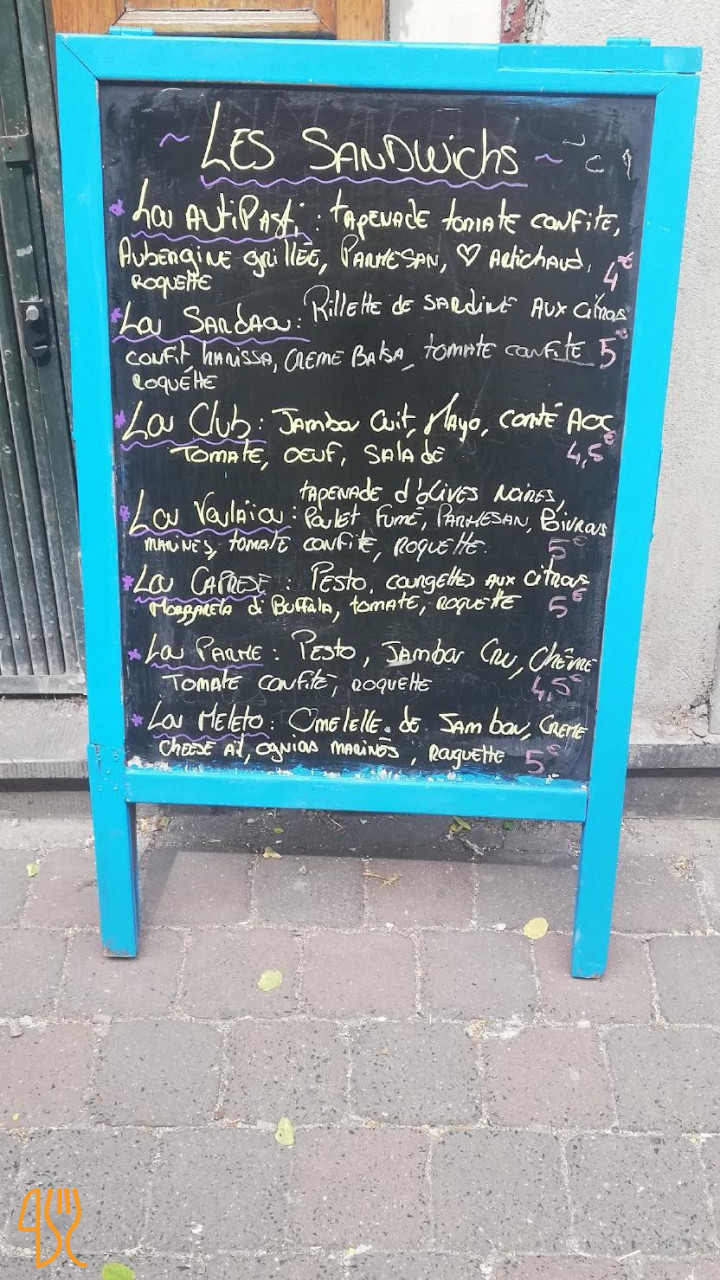 ~ LES SANDWichs ~
* Lou ANTiPASTi : TAPENADE tomate confite,
Aubergine grillée, Parmesan, ♡ Artichaud, 4€
ROQUETTE
* Lou SARDAOU : Rillette de SARDINE AUX citrons
confit harissa, creme Balsa, tomate confite 5€
roquette
* Lou Club : Jambon Cuit, Mayo, comté AOC
Tomate, oeuf, SALADE 4,5€
tapenade d'olives noires,
* Lou Voulaiou : Poulet Fumé, Parmesan, Poivrons
marinés, tomate confite, roquette. 5€
* Lou CAPRESE : Pesto, courgettes aux citrons
Mozzarela di Buffala, tomate, roquette 5€
* Lou Parme : Pesto, Jambon Cru, Chèvre
Tomate confite, roquette 4,5€
* Lou Meleto : Omelette de Jambon, creme
cheese ail, ognions marinés, rouquette 5€